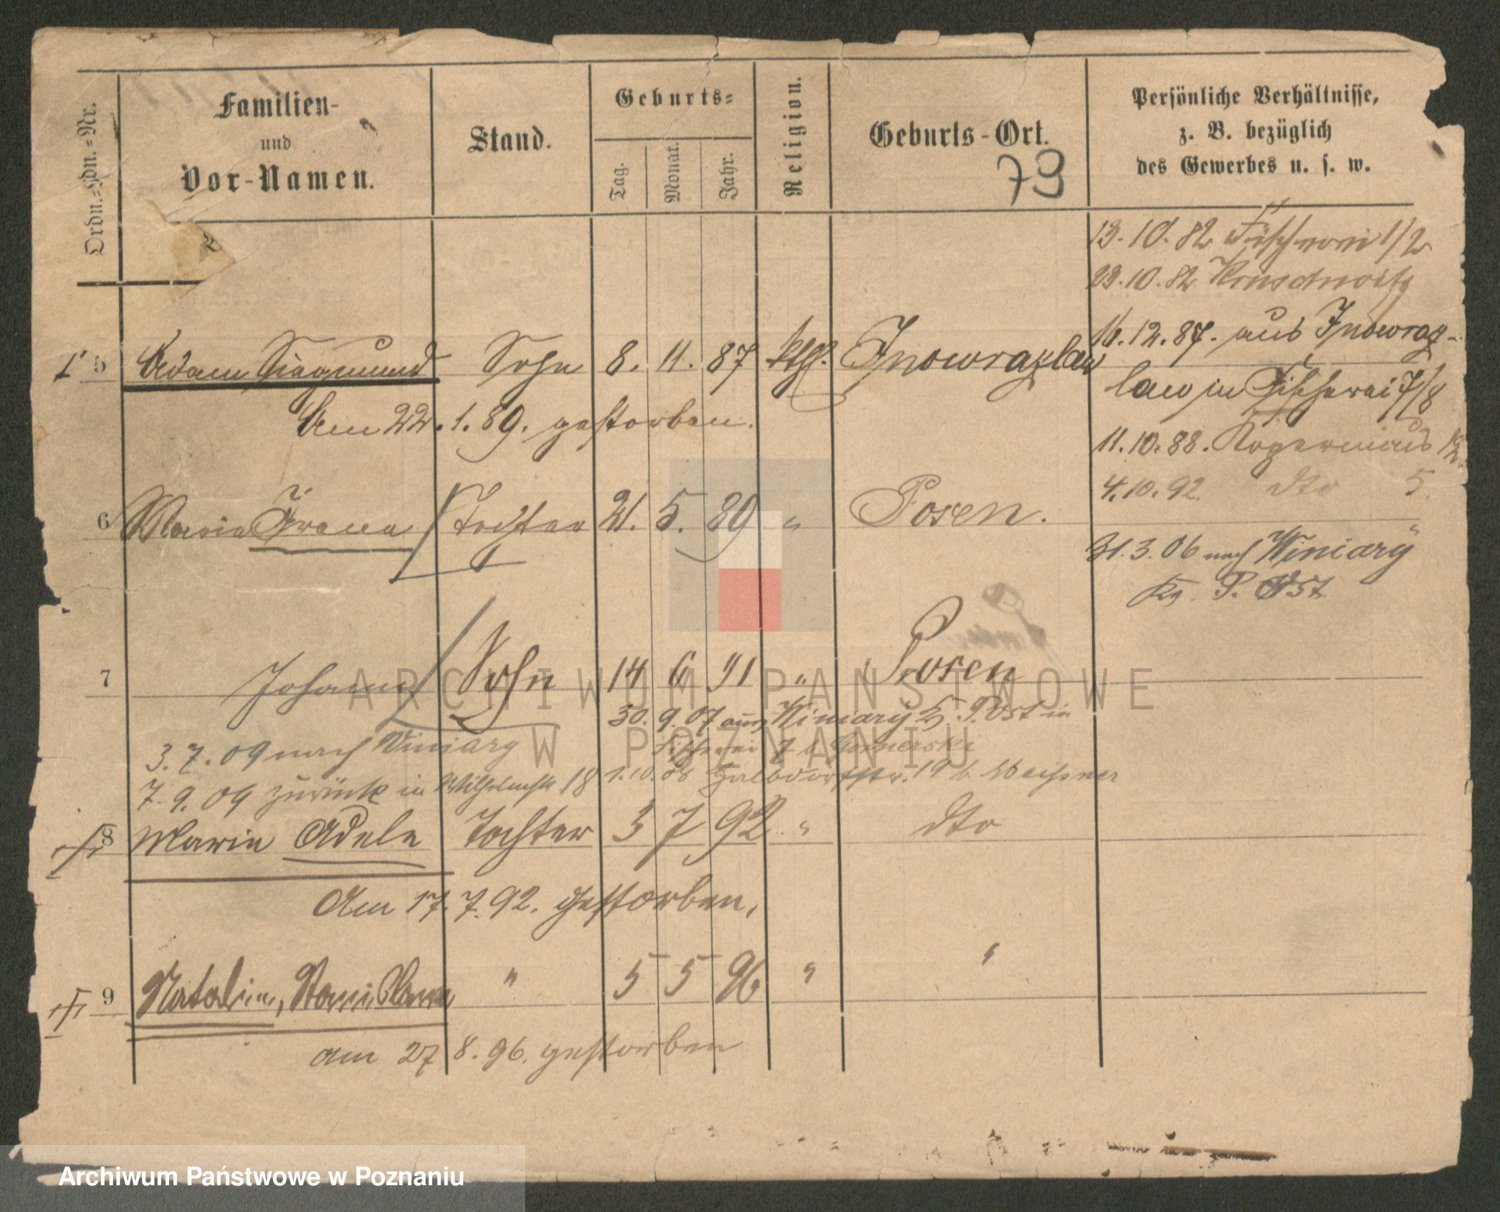 Ordn.=Nr.
Familien-
und
Vor-Namen.
Stand.
Geburts=
Tag.
Monat.
Jahr.
Religion.
Geburts-Ort.
73
Persönliche Verhältnisse,
z. B. bezüglich
des Gewerbes u. s. w.
13.10.82 Fischerei 1/2
23.10.82
16.12.87. aus Inowraz-
law in Fischerei 7/8
11.10.88.
4.10.92. dto 5.
31.3.06 nach Winiary
P. Ost.
5 Adam Siegmund Sohn 8. 11. 87 ktg. Inowrazlaw
Am 22.1.89. gestorben.
6 Maria Irana Tochter 21. 5. 89 " Posen.
7 Johann Sohn 14 6 91 " Posen
30.9.07 aus Winiary Kr. P. Ost in
3.7.09 nach Winiary
Fischerei 7 b.
7.9.09 zurück in Wilhelmstr 18
1.10.08 Halbdorfstr. 19 b. Meissner
8 Maria Adele Tochter 3 7 92 " dto
Am 17.7.92. gestorben,
9 Natalie, " 5 5 96 " "
am 27.8.96. gestorben
ARCHIWUM PAŃSTWOWE
W POZNANIU
Archiwum Państwowe w Poznaniu